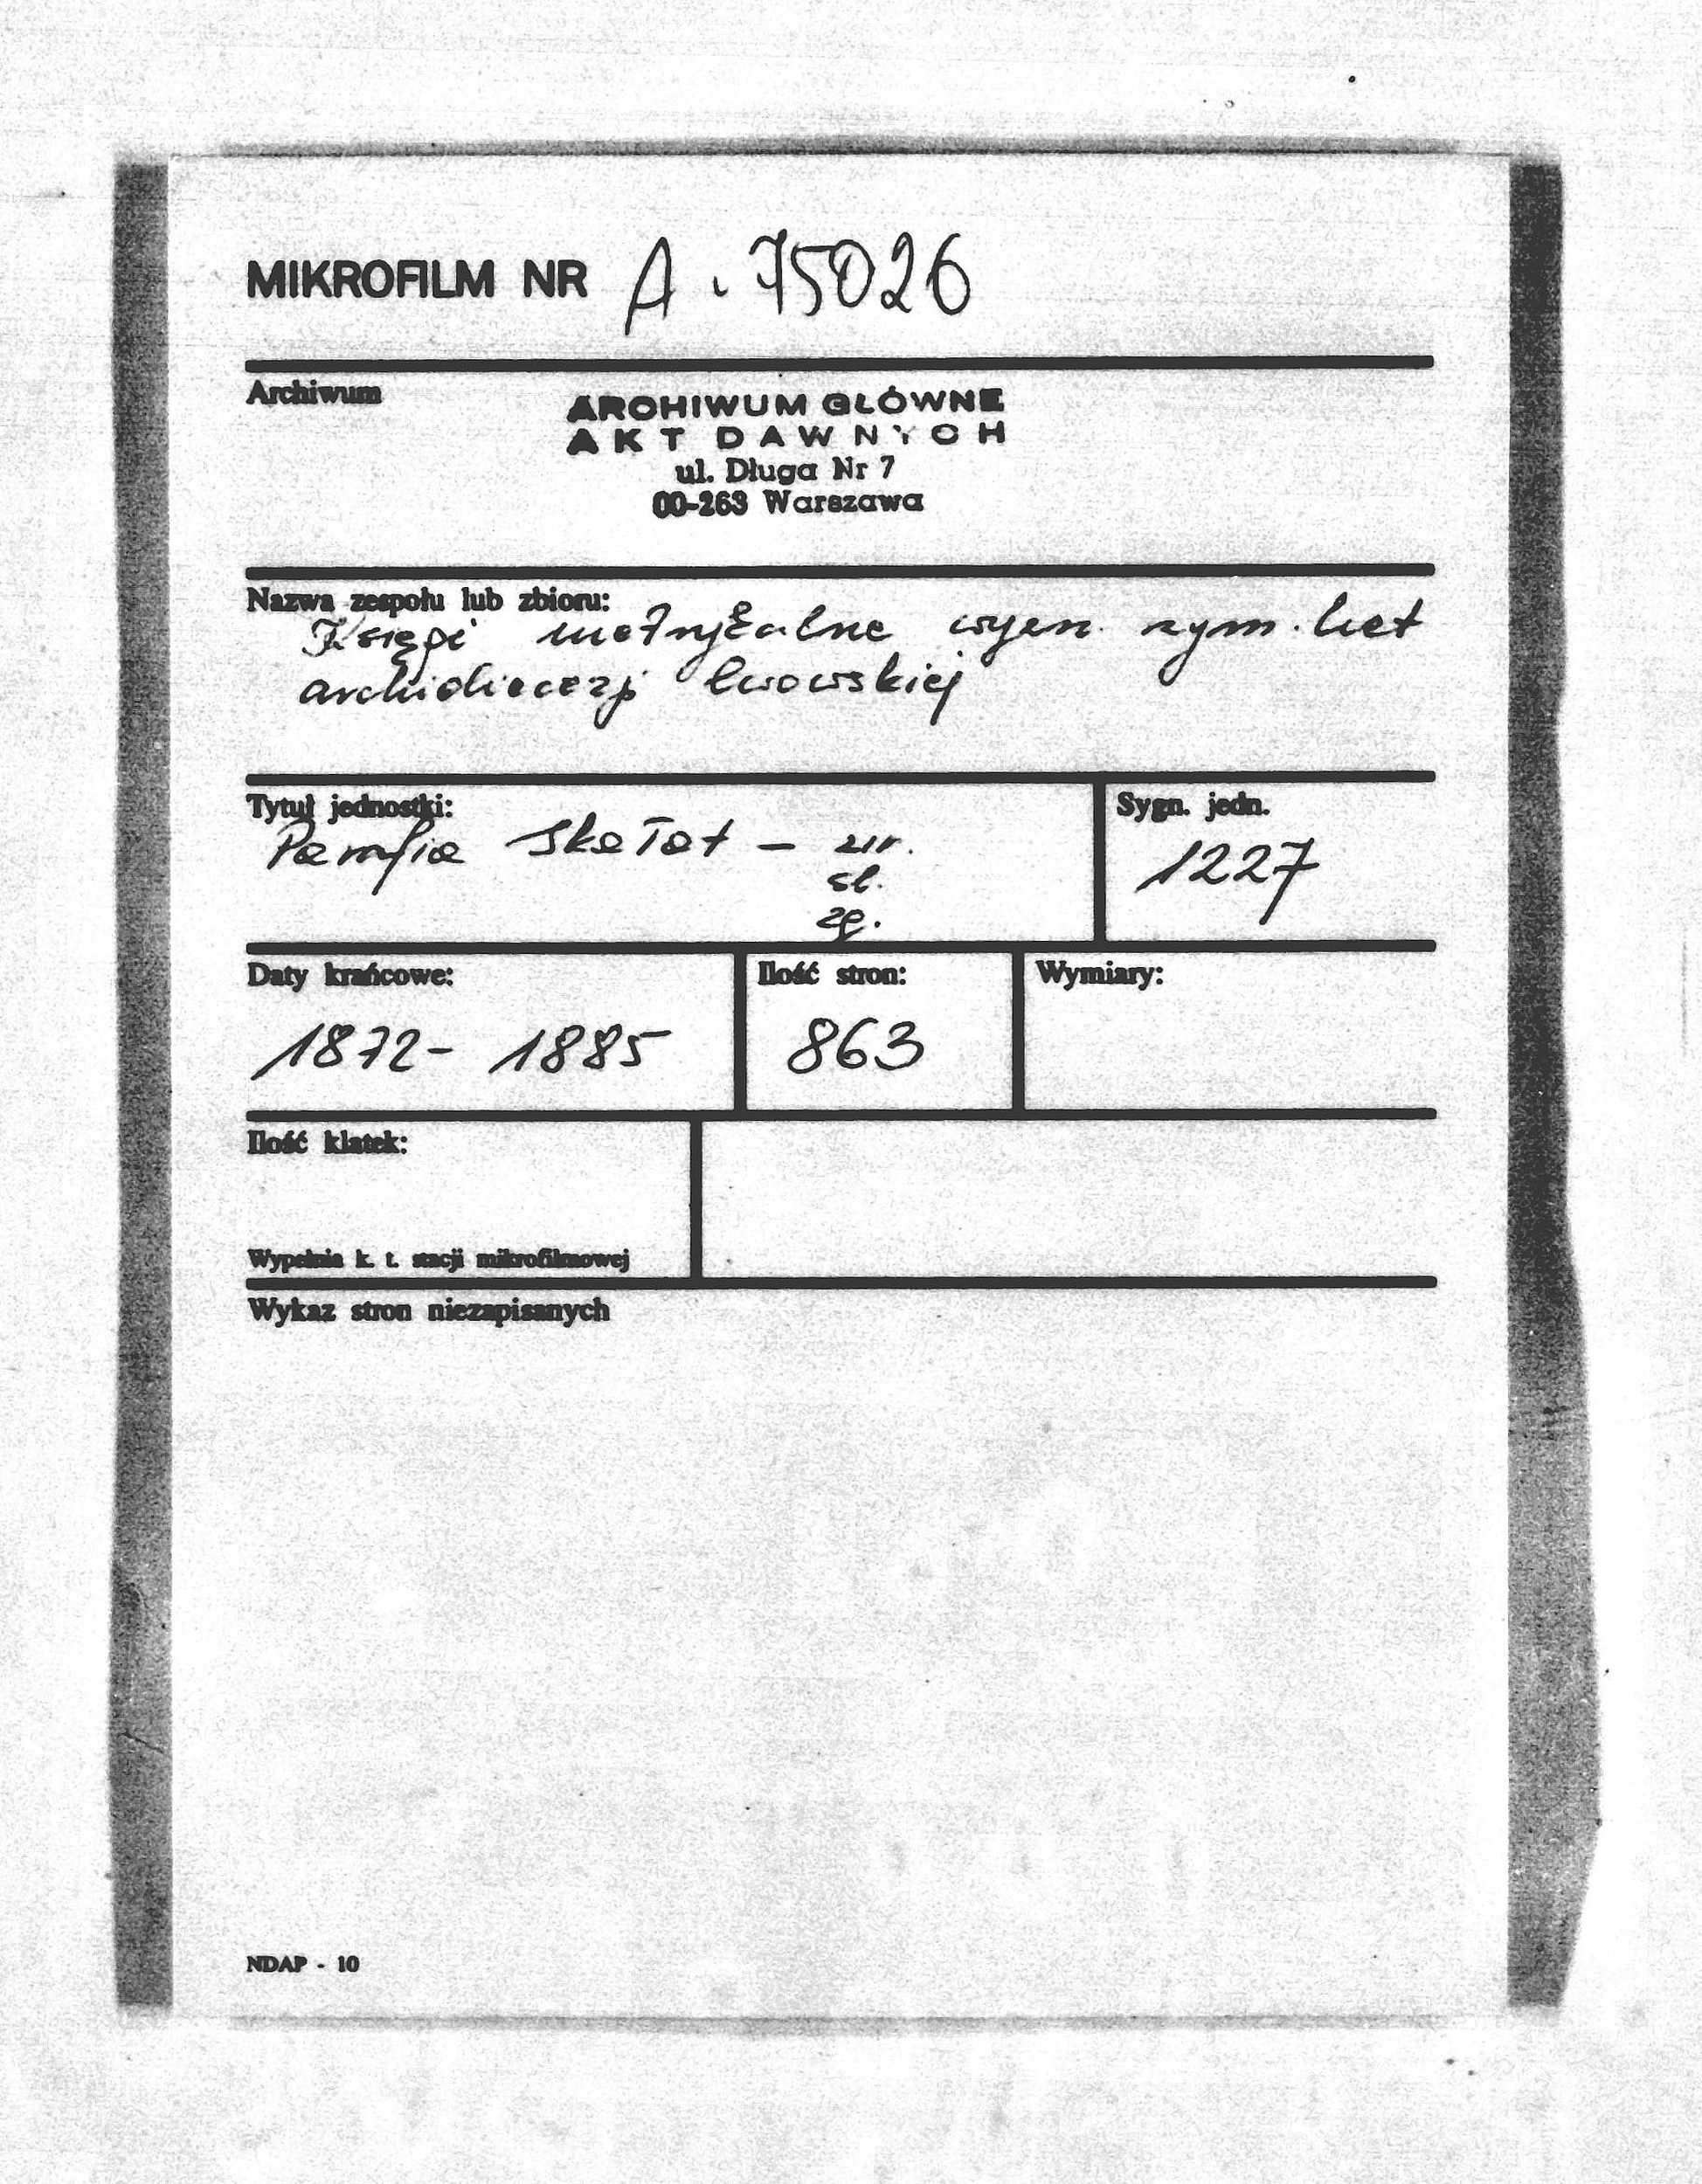 MIKROFILM NR A. 75026
Archiwum
ARCHIWUM GŁÓWNE
AKT DAWNYCH
ul. Długa Nr 7
00-263 Warszawa
Nazwa zespołu lub zbioru:
Księgi metrykalne wyzn. rzym. kat
archidiecezji lwowskiej
Tytuł jednostki:
Parafia Skałat - ur.
śl.
zg.
Sygn. jedn.
1227
Daty krańcowe:
1872 - 1885
Ilość stron:
863
Wymiary:
Ilość klatek:
Wypełnia k. t. stacji mikrofilmowej
Wykaz stron niezapisanych
NDAP - 10